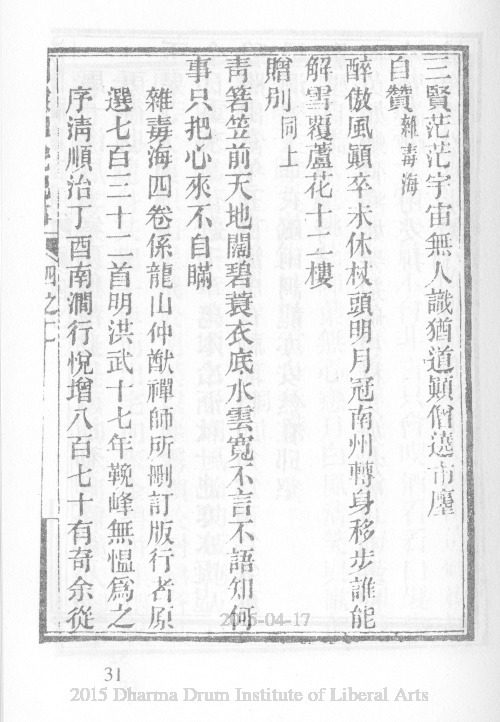 三賢茫茫宇宙無人識猶道顛僧遶市廛
自贊 雜毒海
醉傲風顛卒未休杖頭明月冠南州轉身移步誰能
解雪覆蘆花十二樓
贈別 同上
靑箬笠前天地闊碧蓑衣底水雲寬不言不語知何
事只把心來不自瞞
雜毒海四卷係龍山仲猷禪師所刪訂版行者原
選七百三十二首明洪武十七年鞔峰無慍爲之
序淸順治丁酉南澗行悅增八百七十有奇余從
四之二
2015-04-17
31
2015 Dharma Drum Institute of Liberal Arts